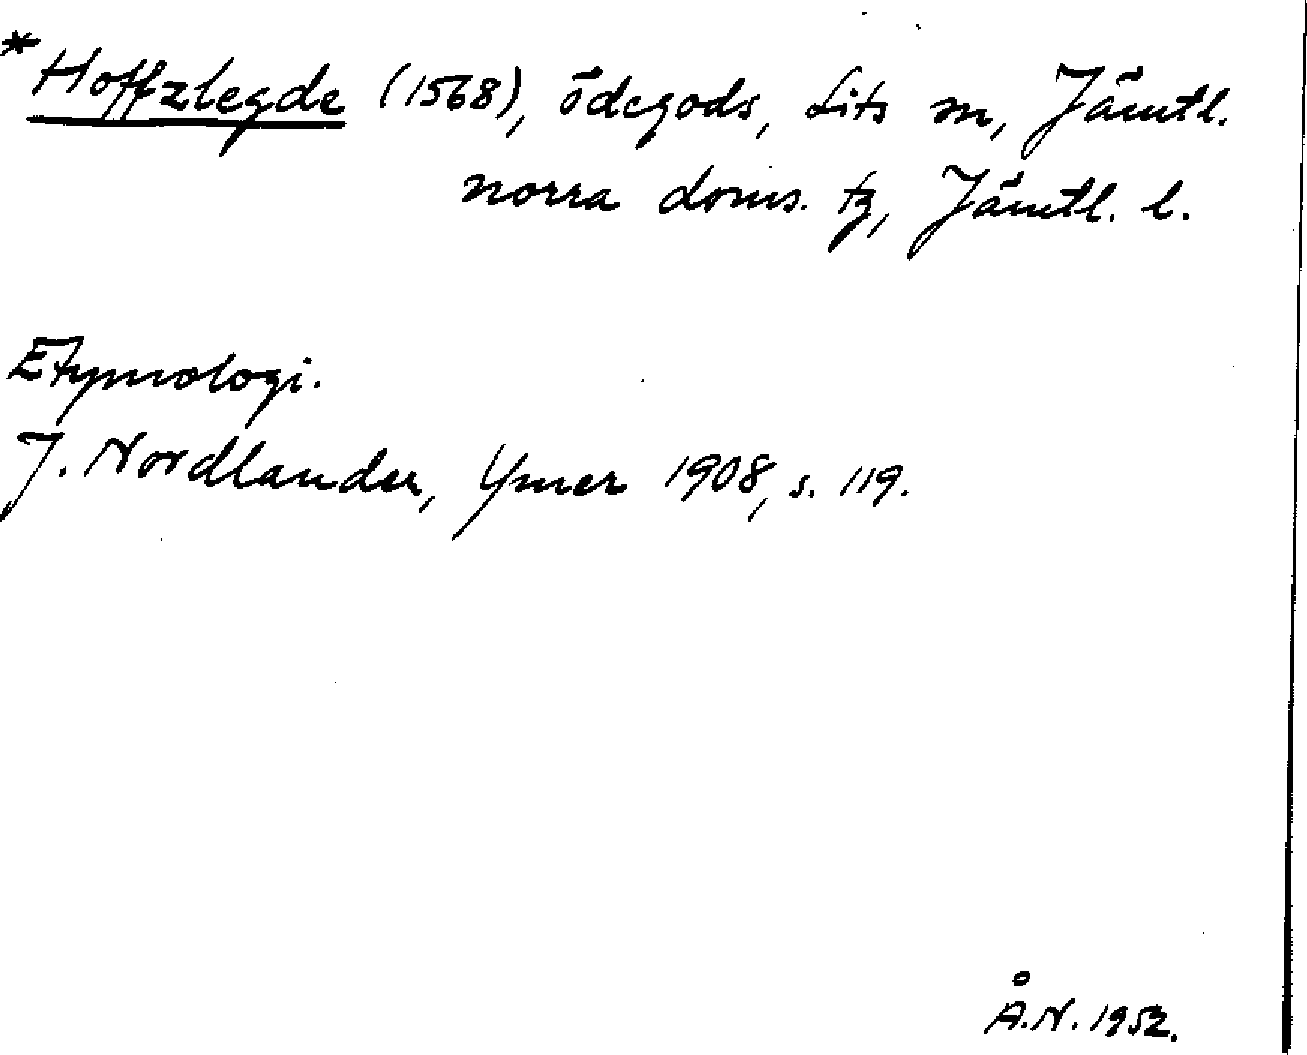 * Hoffzlegde (1568), ödegods, Lits sn, Jämtl.
norra doms. tg, Jämtl. l.
Etymologi.
J. Nordlander, Ymer 1908, s. 119.
Å.N. 1952.